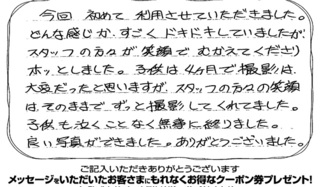 今回 初めて 利用させていただきました。
どんな感じか、すごくドキドキしていましたが
スタッフの方々が笑顔で むかえてくださり
ホッとしました。子供は4ヶ月で撮影は
大変だったと思いますが、スタッフの方々の笑顔
はそのままで ずっと撮影してくれてました。
子供も泣くことなく無事に終りました。
良い写真ができました。ありがとうございます。
ご記入いただきありがとうございます
メッセージをいただいたお客さまにもれなくお得なクーポン券プレゼント!